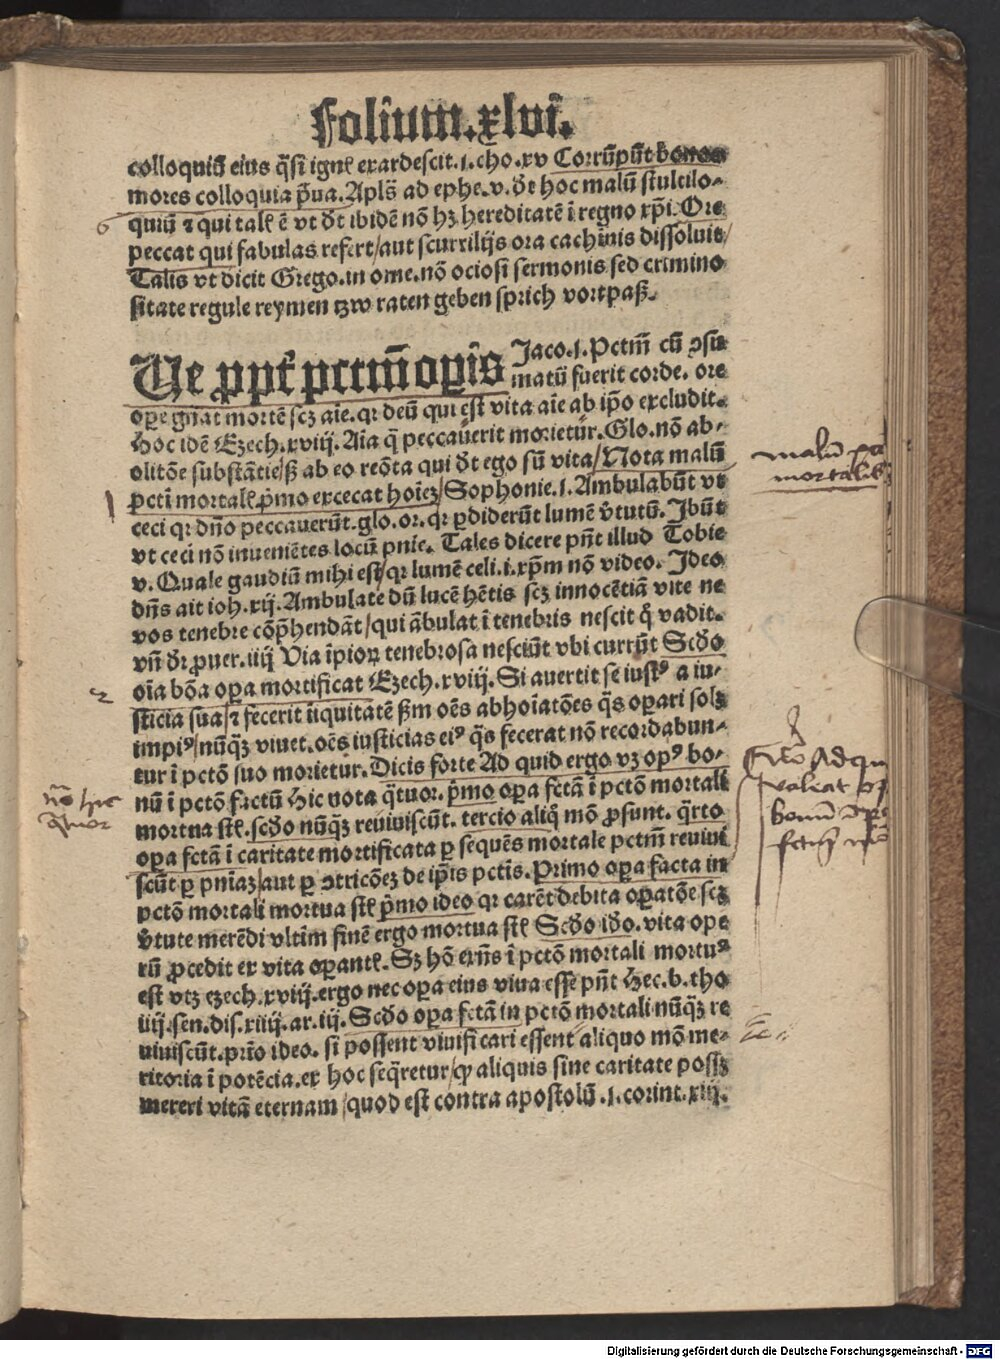 Folium.xlvi.
colloquiū eius q̄si igne exardescit.i.cho.xv Corrūpūt bonos
mores colloquia p̄ua. Apl̄s ad ephe.v. dt̄ hoc malū stultilo-
quiū ⁊ qui tal' ē vt dt̄ ibidē nō hꝫ hereditatē ī regno xp̄i. Ore
peccat qui fabulas refert/aut scurrilijs ora cachinis dissoluit/
Talis vt dicit Grego.in ome.nō ociosi sermonis sed crimino
sitate regule reymen tzw raten geben sprich vortpaß.
We ꝓpt' pctm̄ oꝑis Jaco.i.Pctm̄ cū ꝯsu
matū fuerit corde. ore
oꝑe gnāt mortē scꝫ aīe.qꝛ deū qui est vita aīe ab ip̄o excludit.
Hoc idē Ezech.xviij. Aīa q̄ peccauerit morietur.Glo.nō ab-
olitōe substātie/ß ab eo remōta qui dt̄ ego sū vita/Nota malū
pcti mortale p̄mo excecat hoīeꝫ/Sophonie.i.Ambulabūt vt
ceci qꝛ dn̄o peccauerūt.glo.or.qꝛ ꝑdiderūt lumē v̄tutū. Ibūt
vt ceci nō inueniētes locū pnie. Tales dicere pn̄t illud Tobie
v. Quale gaudiū mihi est/qꝛ lumē celi.i.xp̄m nō video. Ideo
dn̄s ait ioh.xij.Ambulate dū lucē hētis scꝫ innocētiā vite ne
vos tenebre cōp̄hendāt/qui ābulat ī tenebris nescit q̊ vadit.
vn̄ dꝛ ꝓuer.iiij Via īpioꝝ tenebrosa nesciūt vbi currūt Scd̄o
oīa bōa oꝑa mortificat Ezech.xviij. Si auertit se iustꝰ a iu-
sticia sua/⁊ fecerit iniquitatē ßm oēs abhoīatōes q̄s oꝑari solꝫ
impiꝰ/nūq̄ꝫ viuet.oēs iusticias eiꝰ q̄s fecerat nō recordabun-
tur ī pctō suo morietur. Dicis forte Ad quid ergo vꝫ opꝰ bo-
nū ī pctō factū Hic nota q̄tuor. p̄mo oꝑa fctā ī pctō mortali
mortua st̄. scd̄o nūq̄ꝫ reuiuiscūt. tercio aliq̊ mō ꝓsunt. q̄rto
oꝑa fctā ī caritate mortificata ꝑ sequēs mortale pctm̄ reuiui
scūt ꝑ pn̄iaꝫ/aut ꝑ ꝯtricōeꝫ de ip̄is pctis. Primo oꝑa facta in
pctō mortali mortua st̄ p̄mo ideo qꝛ carēt debita oꝑatōe scꝫ
v̄tute merēdi vltim̄ finē ergo mortua st̄ Scd̄o ido. vita ope
rū ꝓcedit ex vita oꝑante. Sꝫ hō exn̄s ī pctō mortali mortuꝰ
est vtꝫ ezech.xviij.ergo nec oꝑa eius viua esse pn̄t Hec.b.tho
iiij.sen.dis.xiiij.ar.iij. Scd̄o oꝑa fctā in pctō mortali nūq̄ꝫ re
uiuiscūt.prīo ideo. si possent viuificari essent aliquo mō me-
ritoria ī potēcia.ex hoc seq̄retur/ꝙ aliquis sine caritate possꝫ
mereri vitā eternam/quod est contra apostolū .i.corint.xiij.
6
1
malū
mortalis
2
nō hic
q̄tuor
Ad qui
valeat
bonū